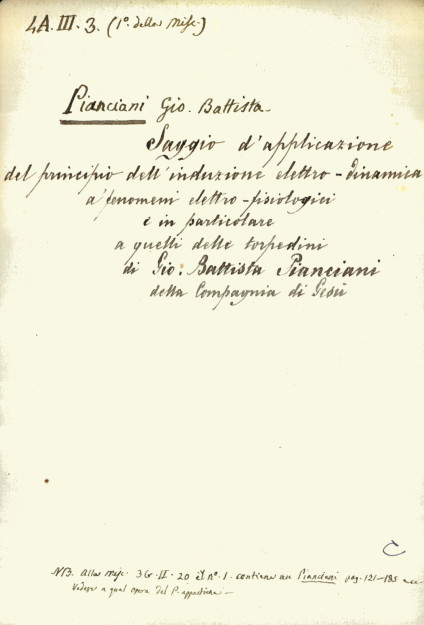 4A. III. 3. (1º. della Misc.)
Pianciani Gio. Battista
Saggio d'applicazione
del principio dell'induzione elettro-dinamica
a' fenomeni elettro-fisiologici
e in particolare
a quelli delle torpedini
di Gio: Battista Pianciani
della Compagnia di Gesù
C
NB. Alla Misc. 3G. II. 20 il nº. 1. contiene un Pianciani pag. 121-185
Vedere a qual opera del P. appartiene